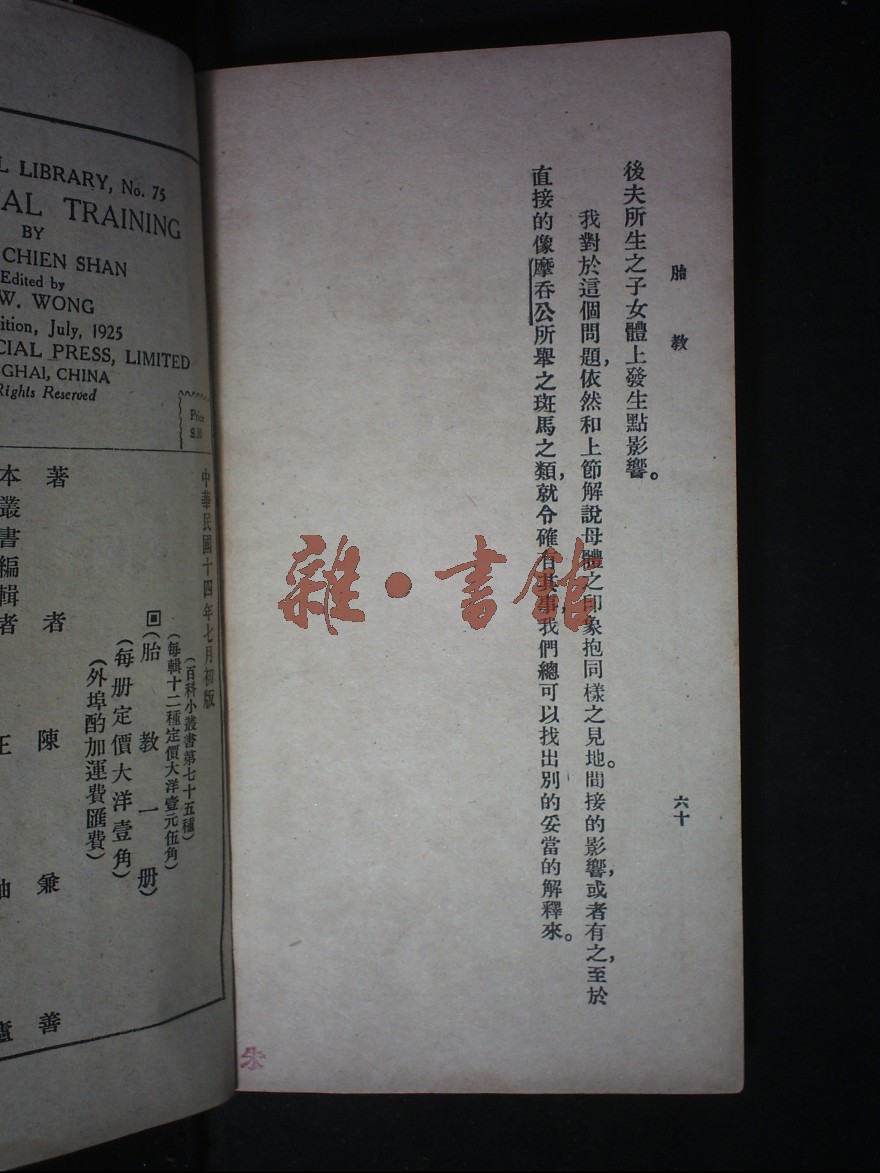 胎教
六十
後夫所生之子女體上發生點影響。
我對於這個問題，依然和上節解說母體之印象抱同樣之見地。間接的影響，或者有之，至於
直接的像摩吞公所舉之斑馬之類，就令確有其事，我們總可以找出別的妥當的解釋來。
雜·書館
朱
L LIBRARY, No. 75
AL TRAINING
BY
CHIEN SHAN
Edited by
W. WONG
ition, July, 1925
CIAL PRESS, LIMITED
GHAI, CHINA
Rights Reserved
Price
中華民國十四年七月初版
（百科小叢書第七十五種）
（每輯十二種定價大洋壹元伍角）
（胎教一册）
（每册定價大洋壹角）
（外埠酌加運費匯費）
著者 陳兼善
本叢書編輯者 王岫廬